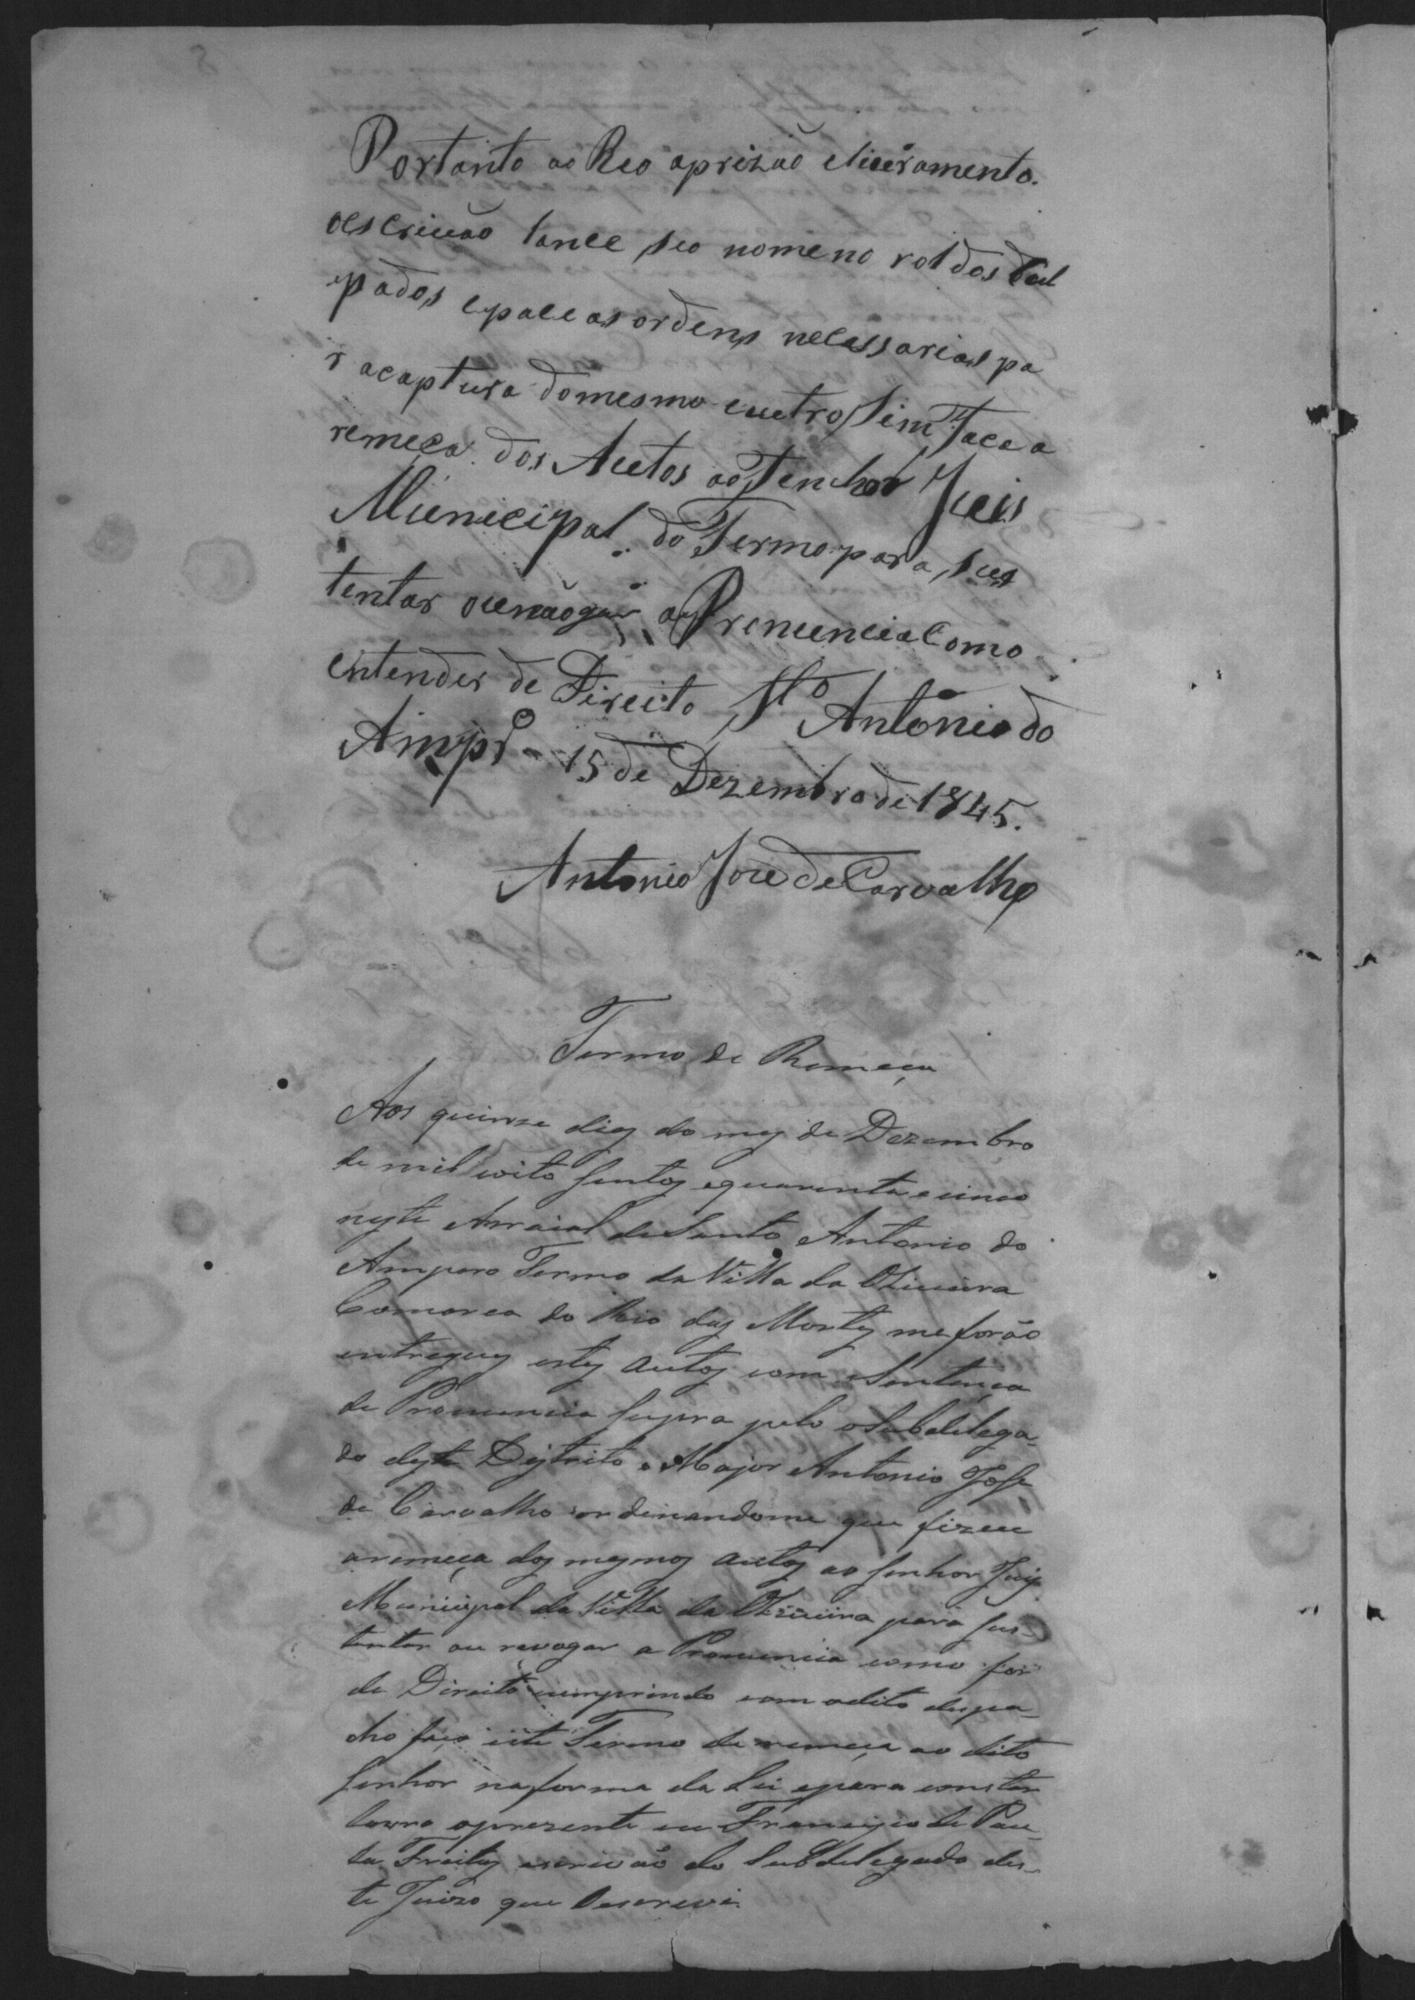 Portanto ao Reo aprizão eliveramento.
oescrivão lance seo nome no rol dos Cul
pados epace as ordens necessarias pa
r acaptura domesmo eoutro Sim face a
remeça dos Autos ao Senhor Juis
Municipal do Termo para sus
tentar ounão a Pronuncia Como
entender de Direito Sto Antonio do
Ampro 15 de Dezembro de 1845.
Antonio Joze de Carvalho
Termo de Remeça
Aos quinze dias do mes de Dezembro
de mil oito Sentos equarenta e cinco
neste Arraial de Santo Antonio do
Amparo Termo da Villa da Oliveira
Comarca do Rio das Mortes me forão
entregues estes autos com a Sentença
de Pronuncia supra pelo o Subdelega-
do deste Destrito o Major Antonio Jose
de Carvalho ordenandome que fizece
aremeça dos mesmos autos ao Senhor Juis
Municipal da Villa da Oliveira para sus-
tentar ou revogar a Pronuncia como for
de Direito cumprindo com odito despa-
cho faço este Termo de remeça ao dito
Senhor naforma da Lei epara constar
lavro opresente eu Francisco de Pau-
la Freitas escrivão do Subdelegado des-
te Juizo que Oescrevi